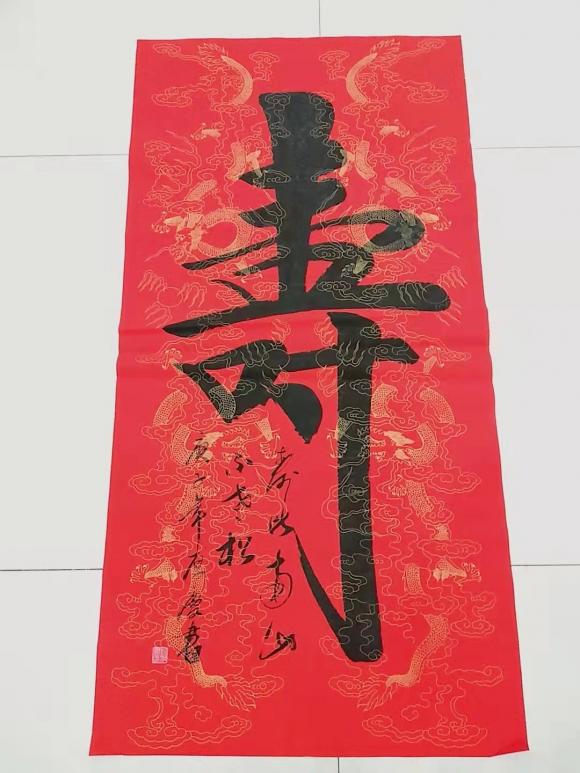 壽
寿比南山
不老松
庚子年 书